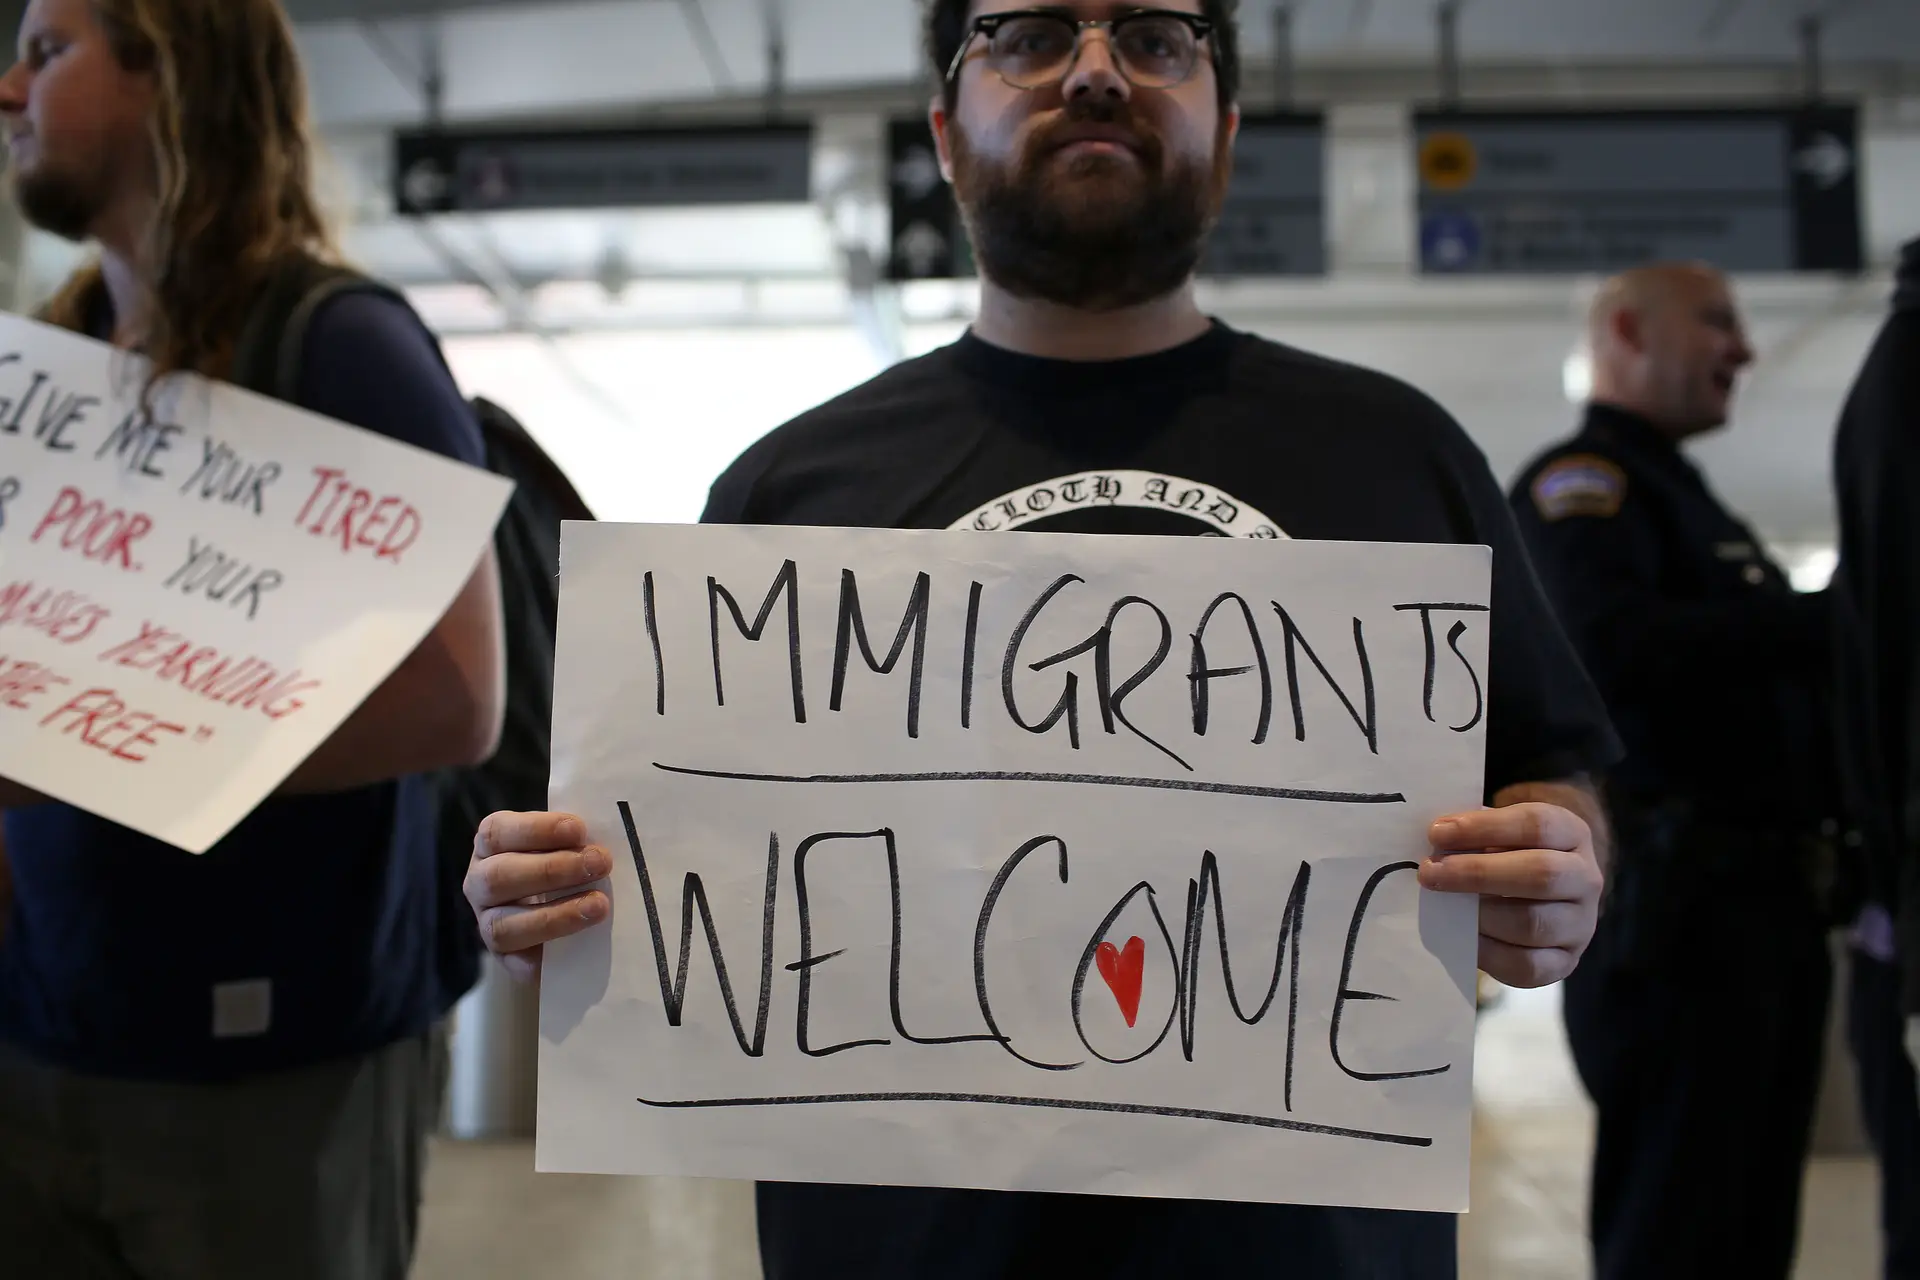 GIVE ME YOUR TIRED.
POOR. YOUR
MASSES YEARNING
FREE"
CLOTH AND
IMMIGRANTS
WELCOME